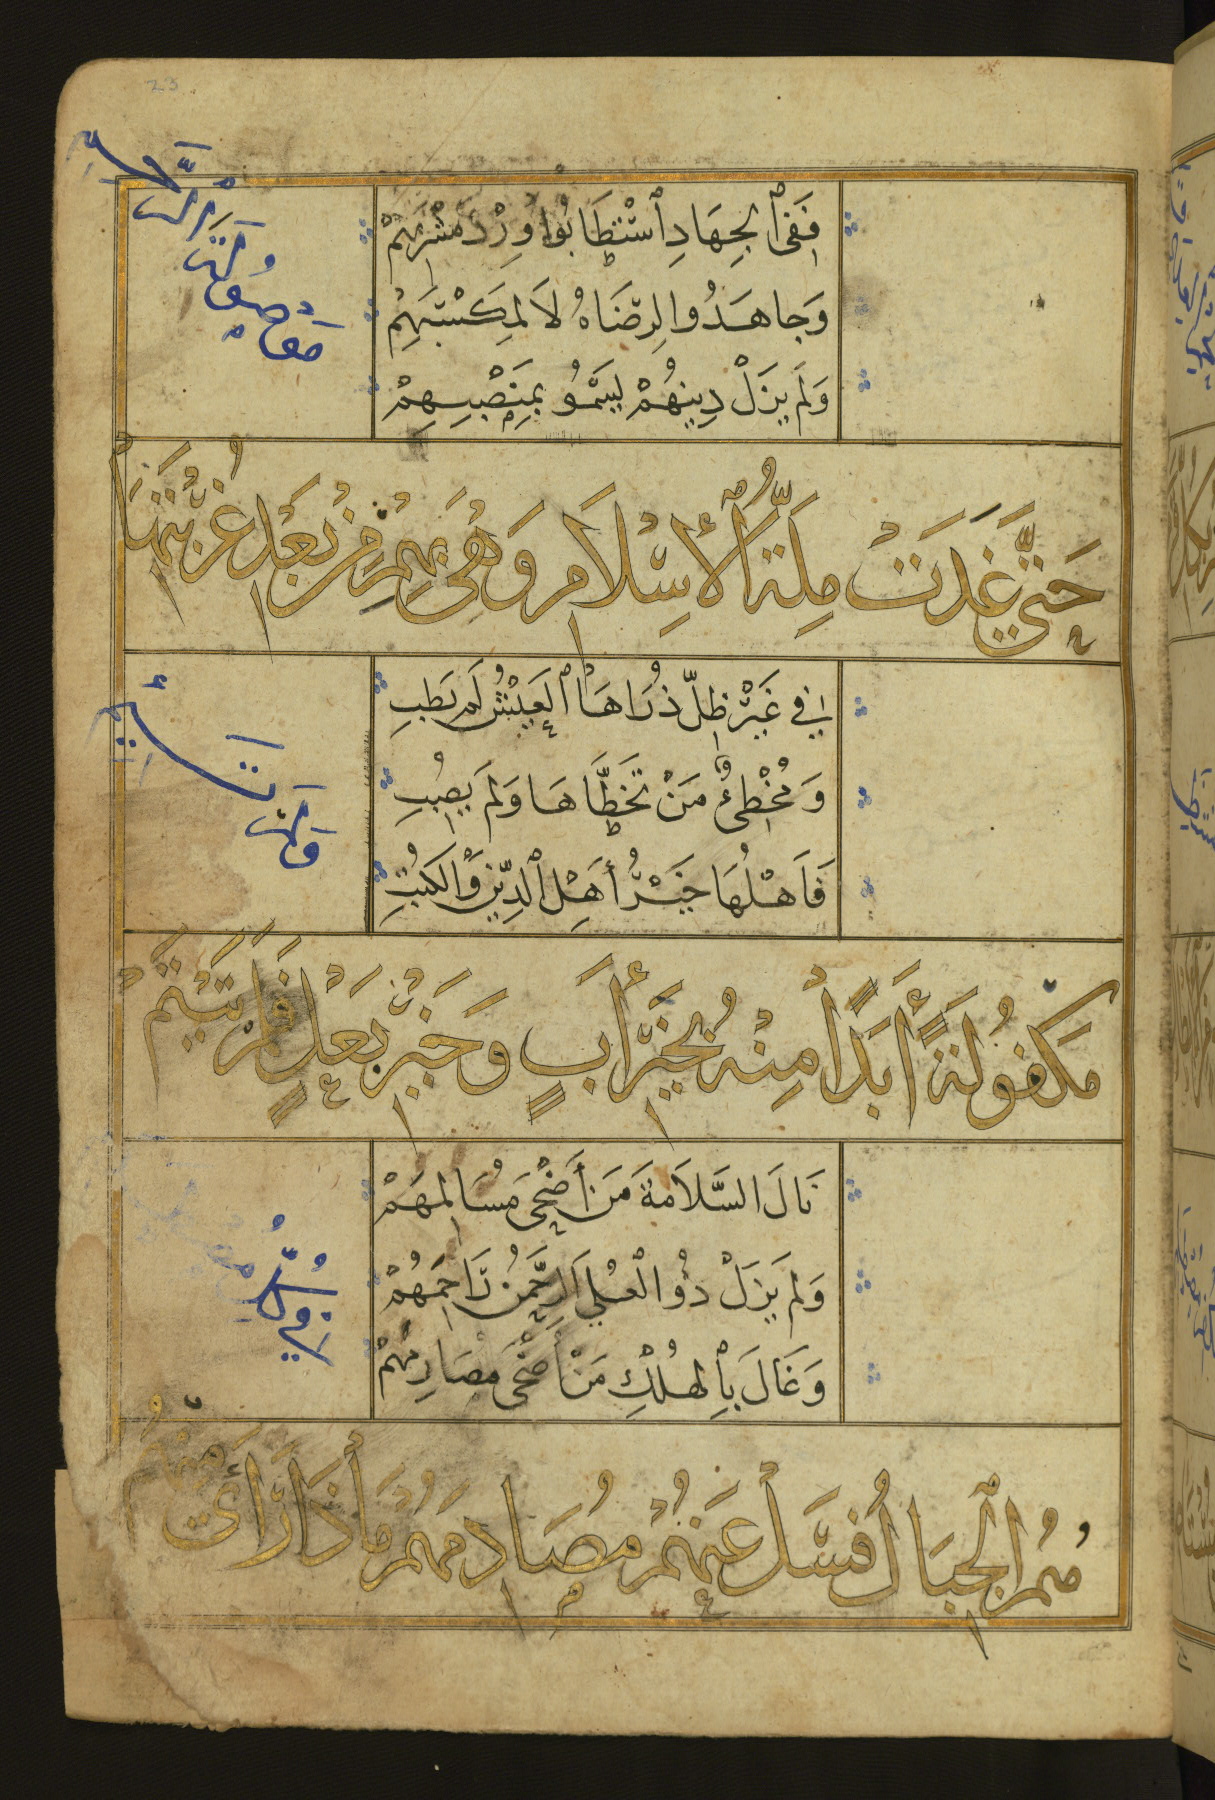 23
فَفِي ٱلْجِهَادِ ٱسْتَطَابُوا وِرْدَ مَشْرَبِهِمْ
وَجَاهَدُوا لِرِضَاهُ لَا لِمَكْسَبِهِمْ
وَلَمْ يَزَلْ دِينُهُمْ يَسْمُو بِمَنْصِبِهِمْ
حَتَّى غَدَتْ مِلَّةُ ٱلْإِسْلَامِ وَهْيَ بِهِمْ مِنْ بَعْدِ غُرْبَتِهَا
مَوْصُولَةَ الرَّحِمِ
فِي غَيْرِ ظِلِّ ذُرَاهَا ٱلْعَيْشُ لَمْ يَطِبِ
وَمُخْطِئٌ مَنْ تَخَطَّاهَا وَلَمْ يُصِبِ
فَأَهْلُهَا خَيْرُ أَهْلِ ٱلدِّينِ وَٱلْكُتُبِ
مَكْفُولَةً أَبَدًا مِنْهُمْ بِخَيْرِ أَبٍ وَخَيْرِ بَعْلٍ فَلَمْ تَيْتَمْ
وَلَمْ تَئِمِ
نَالَ السَّلَامَةَ مَنْ أَضْحَى مُسَالِمَهُمْ
وَلَمْ يَزَلْ ذُو الْعُلَى الرَّحْمٰنُ رَاحِمَهُمْ
وَغَالَ بِٱلْهُلْكِ مَنْ أَضْحَى مُصَارِمَهُمْ
هُمُ ٱلْجِبَالُ فَسَلْ عَنْهُمْ مُصَادِمَهُمْ مَاذَا رَأَى مِنْهُمُ
فِي كُلِّ